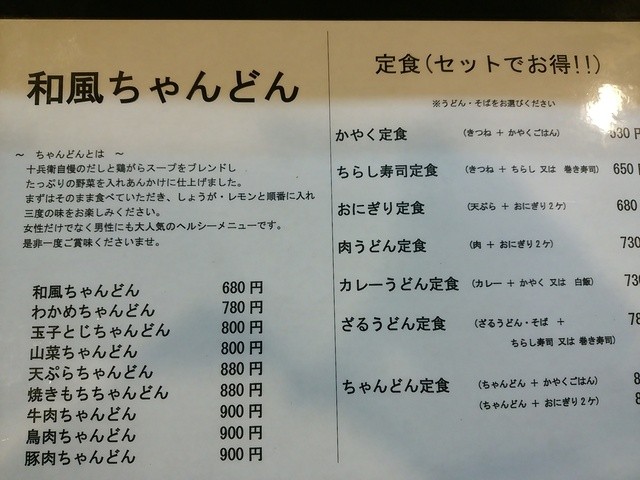 和風ちゃんどん
~ ちゃんどんとは ~
十兵衛自慢のだしと鶏がらスープをブレンドし
たっぷりの野菜を入れあんかけに仕上げました。
まずはそのまま食べていただき、しょうが・レモンと順番に入れ
三度の味をお楽しみください。
女性だけでなく男性にも大人気のヘルシーメニューです。
是非一度ご賞味くださいませ。
和風ちゃんどん 680円
わかめちゃんどん 780円
玉子とじちゃんどん 800円
山菜ちゃんどん 800円
天ぷらちゃんどん 880円
焼きもちちゃんどん 880円
牛肉ちゃんどん 900円
鳥肉ちゃんどん 900円
豚肉ちゃんどん 900円
定食(セットでお得!!)
※うどん・そばをお選びください
かやく定食 (きつね + かやくごはん)
ちらし寿司定食 (きつね + ちらし 又は 巻き寿司) 650
おにぎり定食 (天ぷら + おにぎり2ケ) 680
肉うどん定食 (肉 + おにぎり2ケ) 730
カレーうどん定食 (カレー + かやく 又は 白飯)
ざるうどん定食 (ざるうどん・そば +
ちらし寿司 又は 巻き寿司)
ちゃんどん定食 (ちゃんどん + かやくごはん)
(ちゃんどん + おにぎり2ケ)